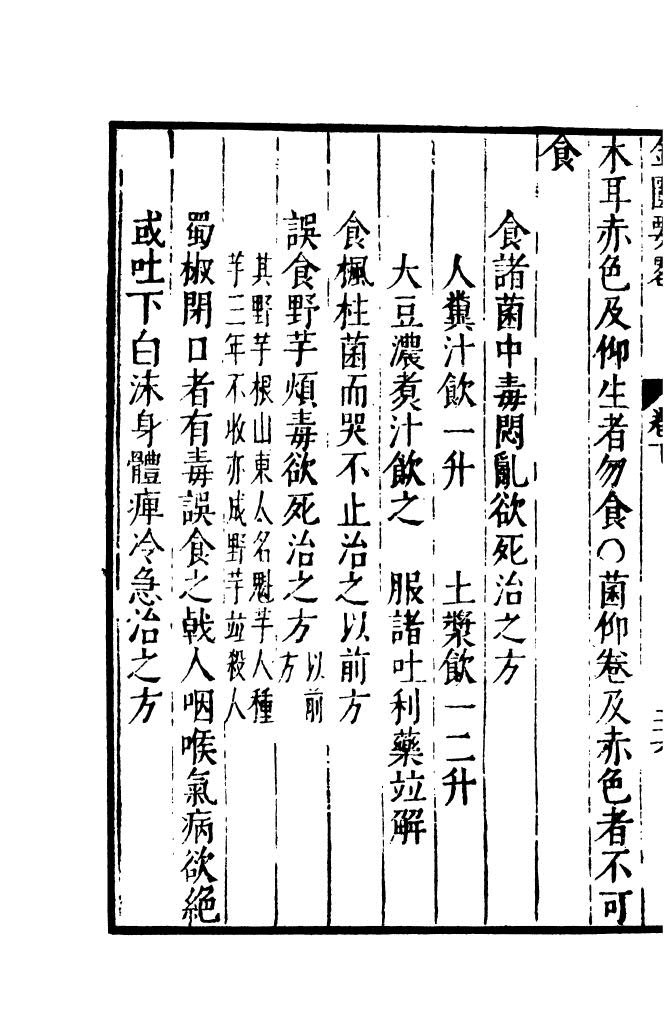 金匱要畧 卷下
木耳赤色及仰生者勿食〇菌仰卷及赤色者不可
食
食諸菌中毒悶亂欲死治之方
人糞汁飲一升 土漿飲一二升
大豆濃煑汁飲之 服諸吐利藥竝解
食楓柱菌而哭不止治之以前方
誤食野芋煩毒欲死治之方以前方
其野芋根山東人名魁芋人種
芋三年不收亦成野芋竝殺人
蜀椒閉口者有毒誤食之戟人咽喉氣病欲絶
或吐下白沫身體痺冷急治之方